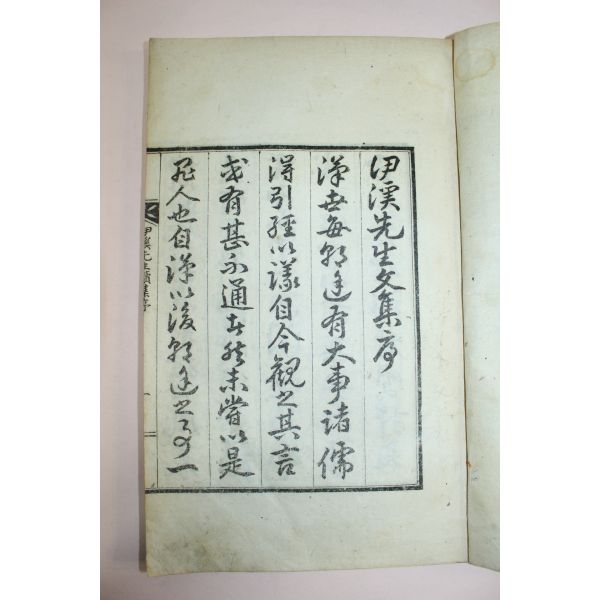 伊溪先生文集序
漢世每朝廷有大事諸儒
得引經以議自今觀之其言
或有甚不通者然未嘗以是
罪人也自漢以後朝廷之事一
伊溪先生續集序